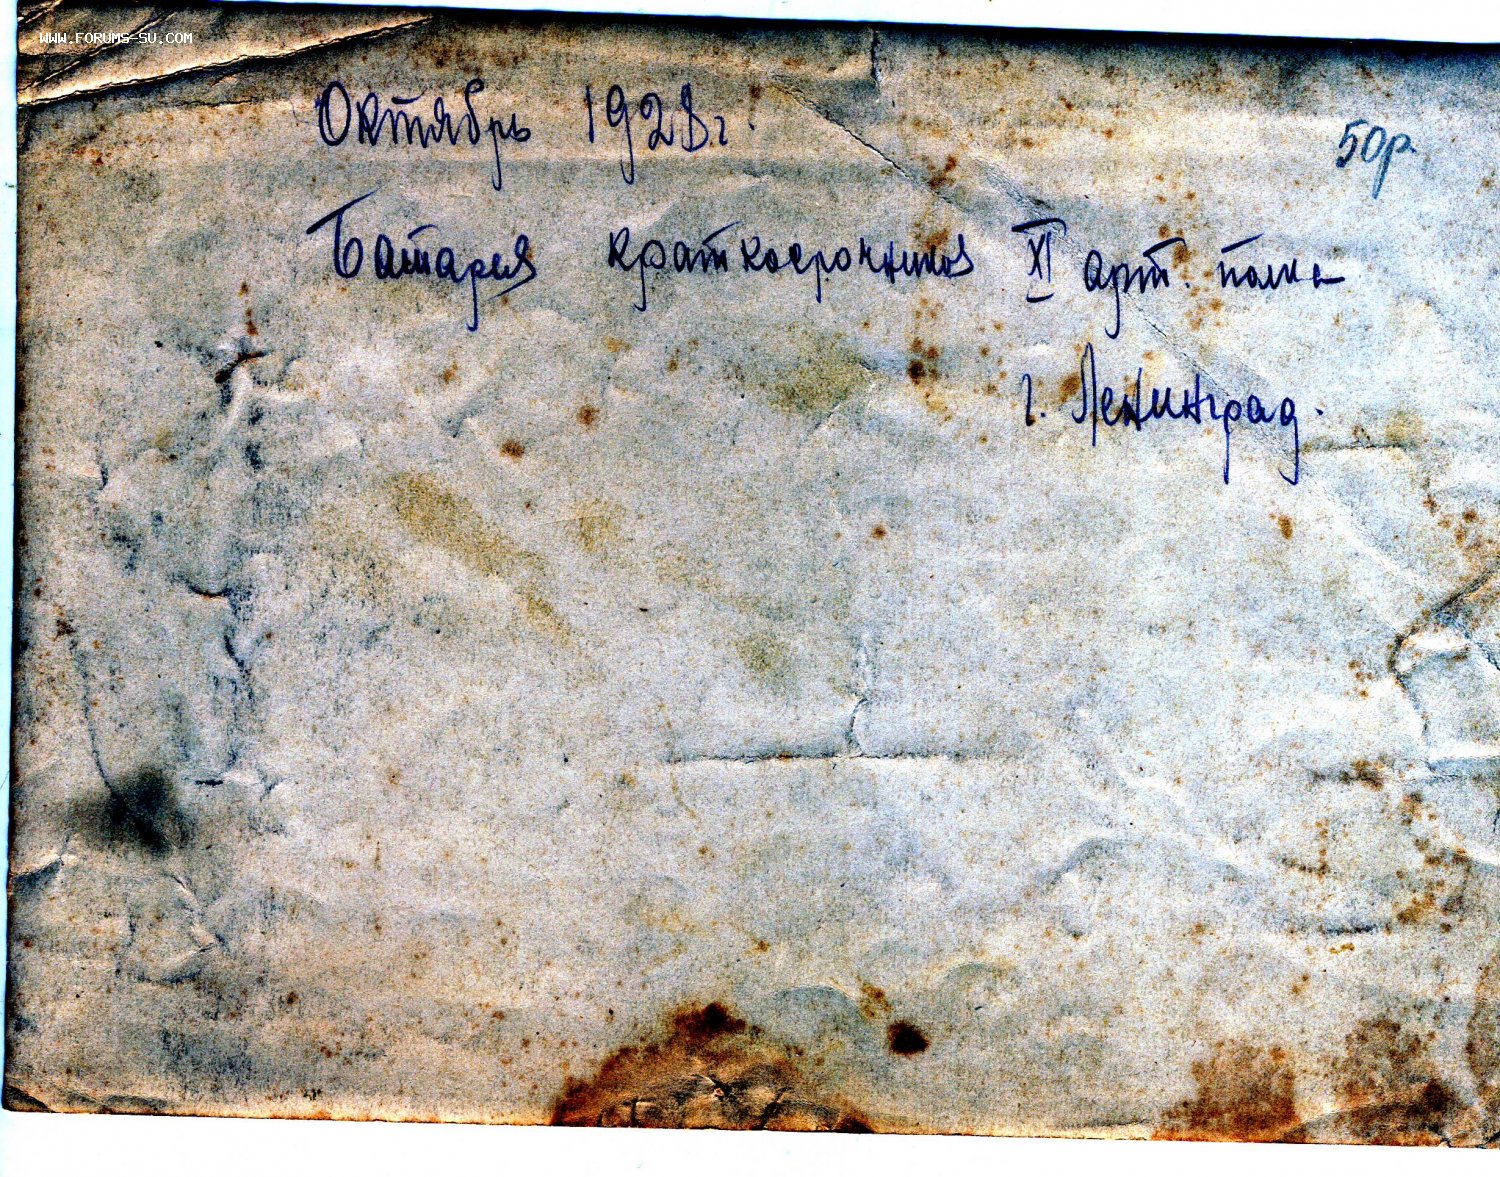 WWW.FORUMS-SU.COM
Октябрь 1928г.
50р.
Батарея краткосрочников XI арт. полка
г. Ленинград.